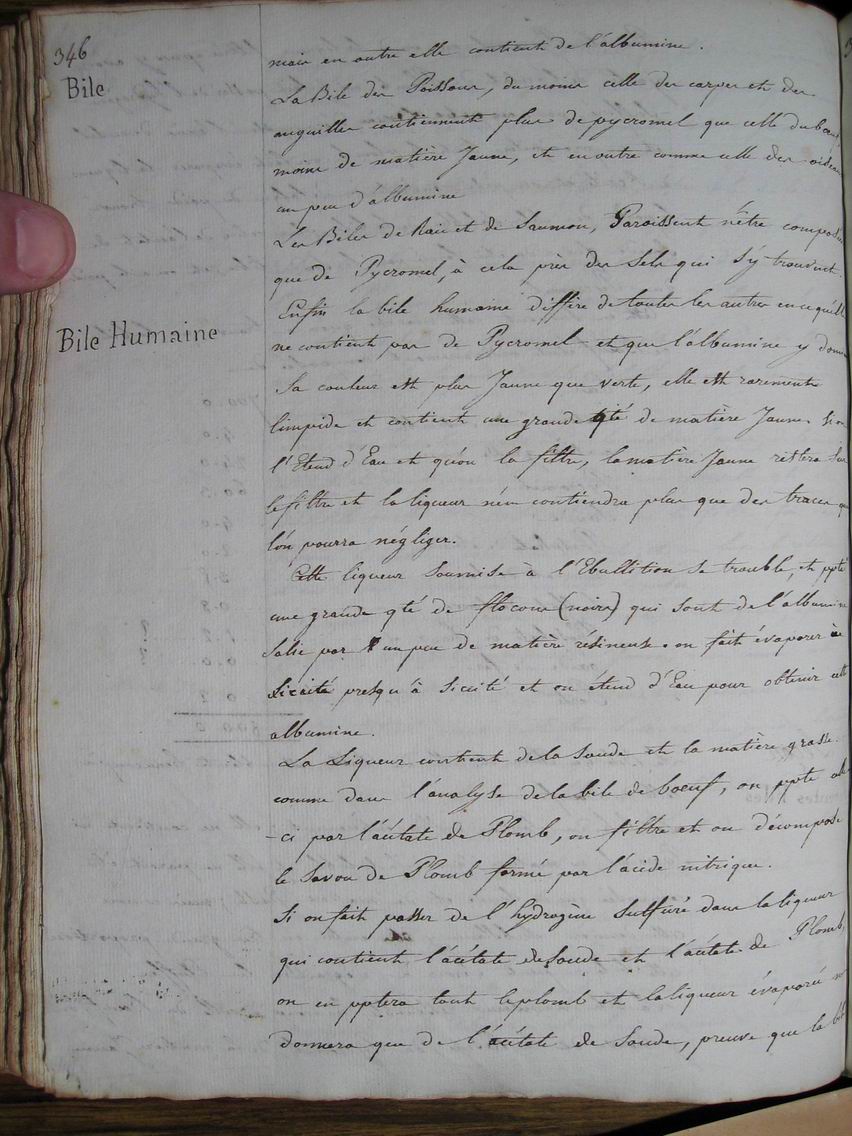 346
Bile
mais en outre elle contient de l'albumine.
La Bile des Poissons, du moins celle des carpes et des
anguilles contiennent plus de pycromel que celle du bœuf
moins de matière Jaune, et en outre comme celle des oiseau
un peu d'albumine
Les Biles de Raie et de Saumon, Paroissent n'être composées
que de Pycromel, à cela près des sels qui s'y trouvent.
Bile Humaine
Enfin la bile humaine diffère de toutes les autres en ce qu'elle
ne contient pas de Pycromel et que l'albumine y domine
Sa couleur est plus Jaune que verte, elle est rarement
limpide et contient une grande qté de matière Jaune. Si on
l'Etend d'Eau et qu'on la filtre, la matière Jaune restera sur
le filtre et la liqueur n'en contiendra plus que des traces que
l'on pourra négliger.
Cette liqueur soumise à l'Ebullition se trouble, et ppte
une grande qté de flocons (noirs) qui sont de l'albumine
salie par un peu de matière résineuse. on fait évaporer à
Sicité presqu'à sicité et on étend d'Eau pour obtenir cette
albumine.
La Liqueur contient de la Soude et la matière grasse.
comme dans l'analyse de la bile de bœuf, on ppte celle
-ci par l'acétate de Plomb, on filtre et on décompose
le Savon de Plomb formé par l'acide nitrique.
Si on fait passer de l'hydrogène sulfuré dans la liqueur
qui contient l'acétate de Soude et l'acétate de Plomb,
on en pptera tout le plomb et la liqueur évaporée ne
donnera que de l'acétate de Soude, preuve que la bile